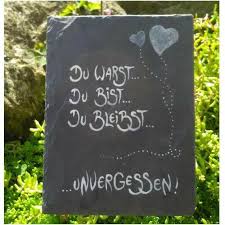 DU WARST...
DU BIST...
DU BLEIBST...
...UNVERGESSEN!